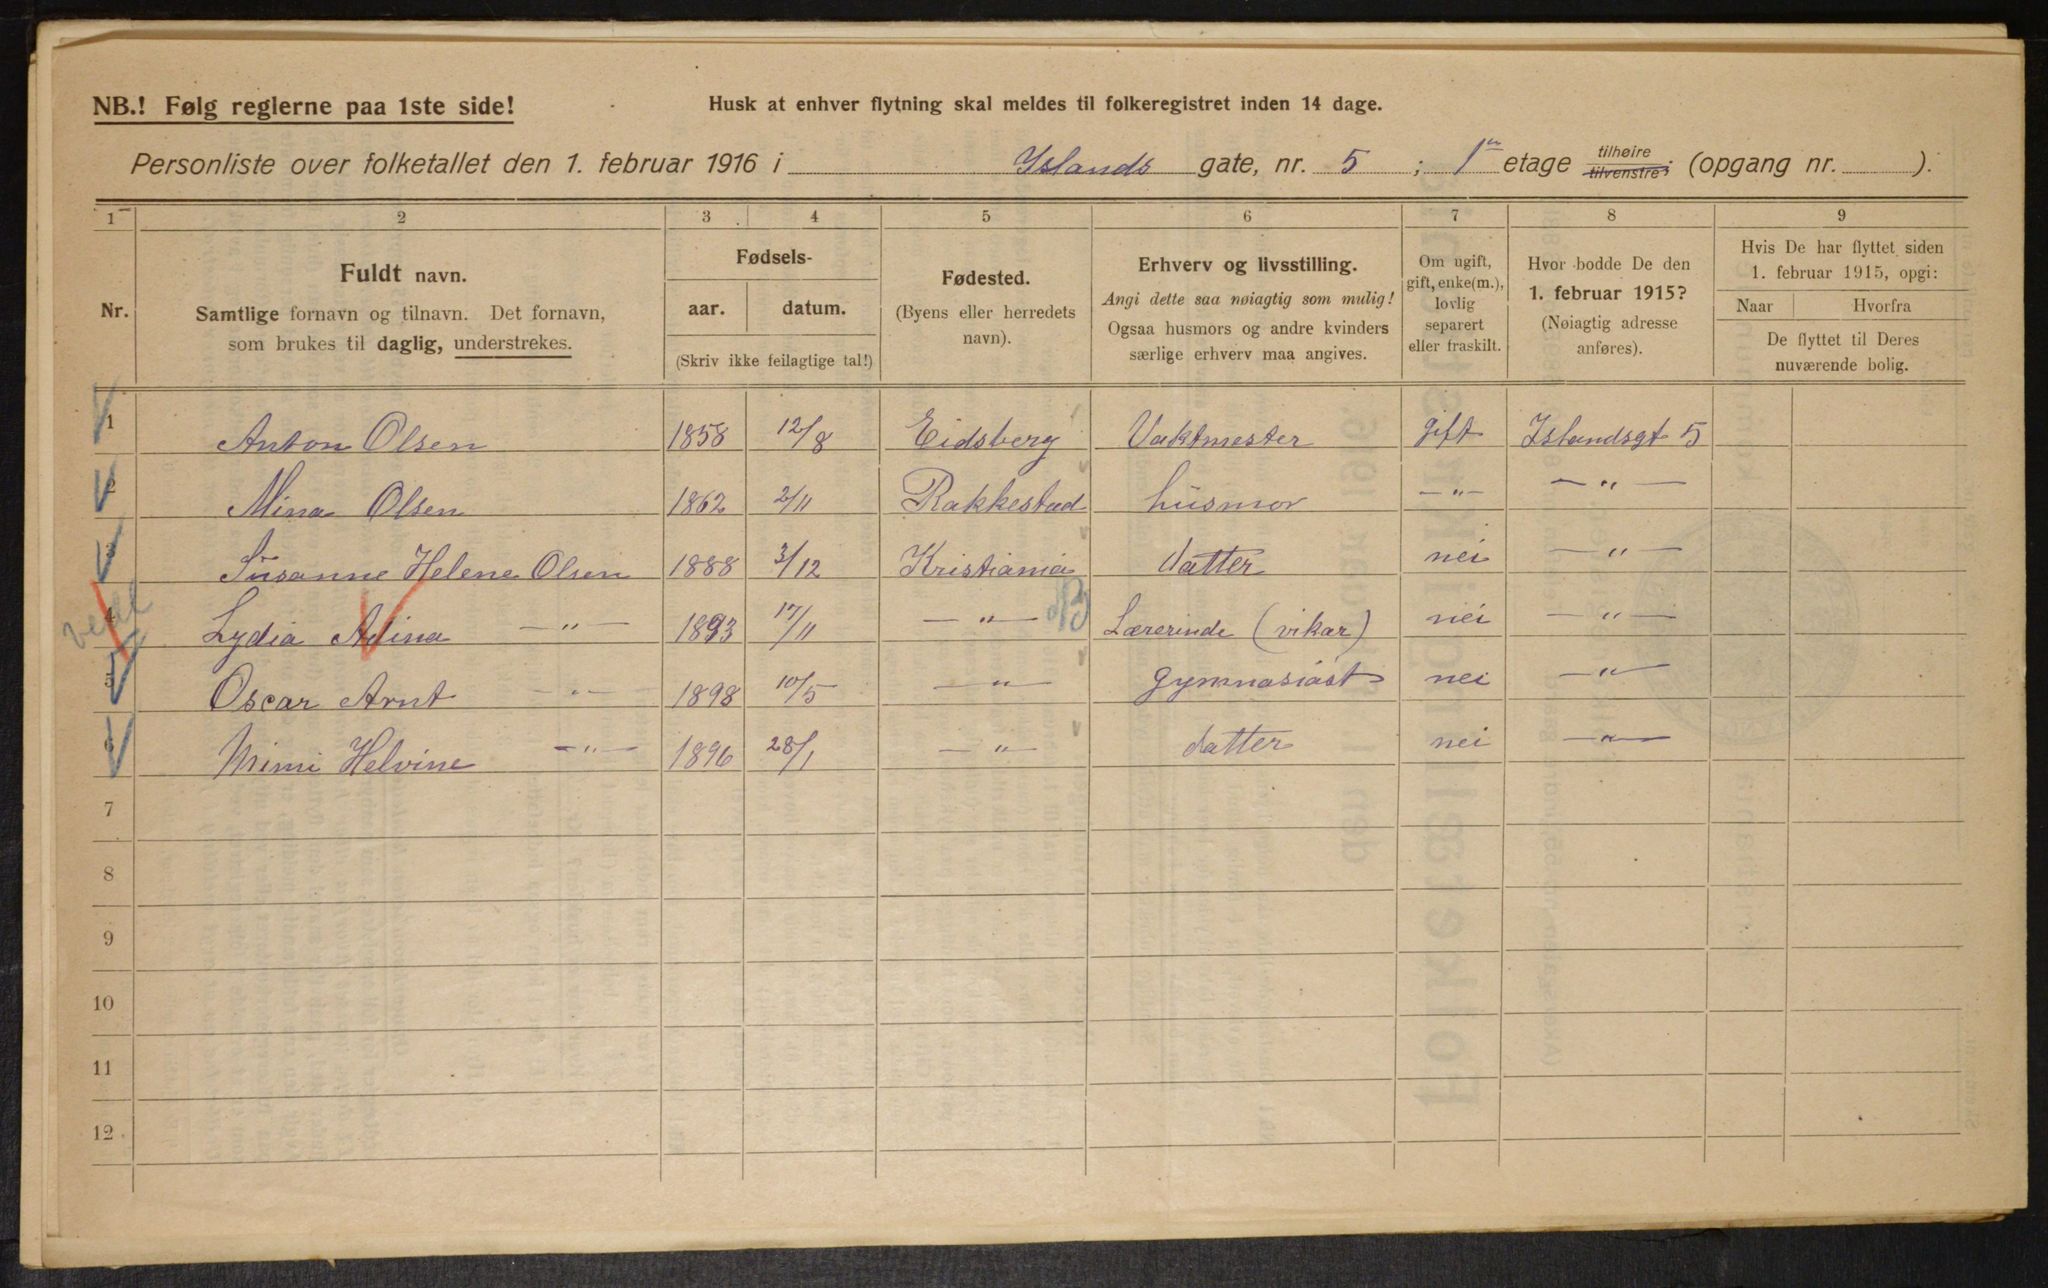 NB.! Følg reglerne paa 1ste side!
Husk at enhver flytning skal meldes til folkeregistret inden 14 dage.
Personliste over folketallet den 1. februar 1916 i Yslands gate, nr. 5 ; 1ste etage tilhøire tilvenstre; (opgang nr. ).
1 2 3 4 5 6 7 8 9
Nr.
Fuldt navn.
Samtlige fornavn og tilnavn. Det fornavn,
som brukes til daglig, understrekes.
Fødsels-
aar.
datum.
(Skriv ikke feilagtige tal!)
Fødested.
(Byens eller herredets
navn).
Erhverv og livsstilling.
Angi dette saa nøiagtig som mulig!
Ogsaa husmors og andre kvinders
særlige erhverv maa angives.
Om ugift,
gift, enke(m.),
lovlig
separert
eller fraskilt.
Hvor bodde De den
1. februar 1915?
(Nøiagtig adresse
anføres).
Hvis De har flyttet siden
1. februar 1915, opgi:
Naar
Hvorfra
De flyttet til Deres
nuværende bolig.
1 Anton Olsen 1858 12/8 Eidsberg Vaktmester gift Islandsgt 5
2 Mina Olsen 1862 2/11 Rakkestad husmor —"— —"—
3 Susanne Helene Olsen 1888 3/12 Kristiania datter nei —"—
4 Lydia Alina —"— 1893 17/11 —"— Lærerinde (vikar) nei —"—
5 Oscar Arnt —"— 1898 10/5 —"— gymnasiast nei —"—
6 Mimi Helvine —"— 1896 28/1 —"— datter nei —"—
7
8
9
10
11
12